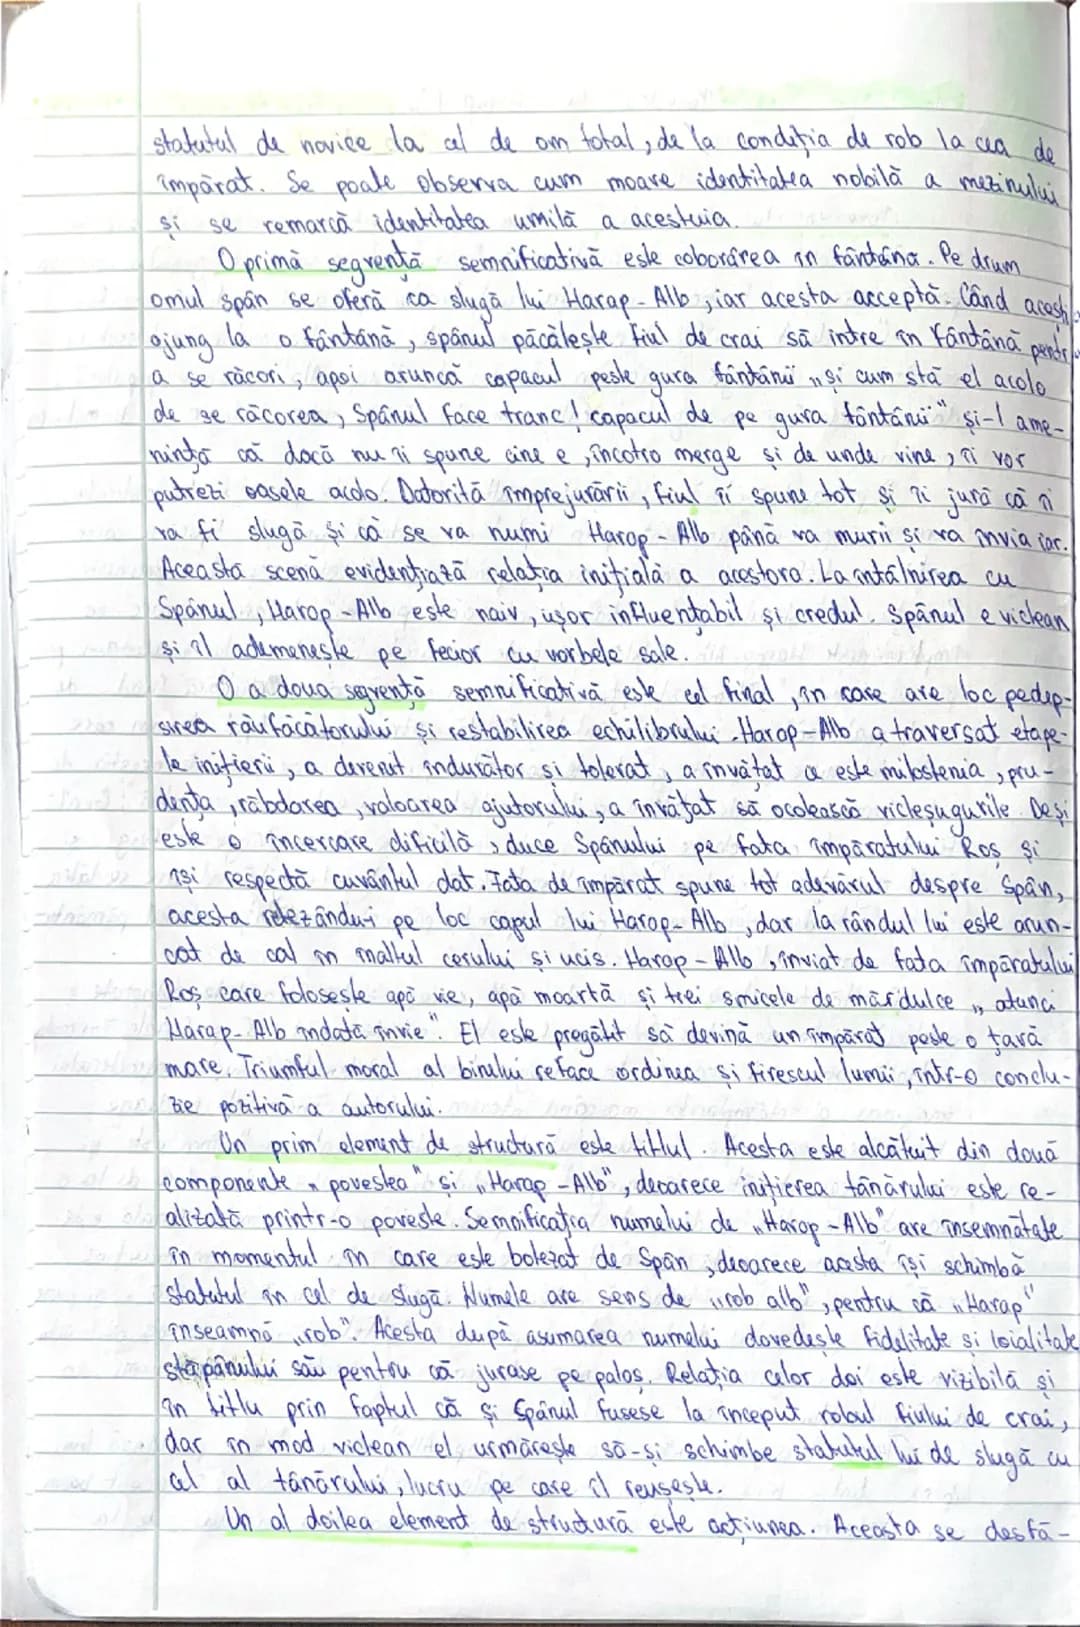 statutul de novice la cel de om total, de la condiția de rob la cea de
împărat. Se poate observa cum moare identitatea nobilă a mezinului
și se remarcă identitatea umilă a acestuia.
O primă segvență semnificativă este coborârea în fântână. Pe drum
omul spân se oferă ca slugă lui Harap-Alb, iar acesta acceptă. Când acești
ajung la o fântână, spânul păcălește fiul de crai să intre în fântână pentru
a se răcori, apoi aruncă capacul peste gura fântânii „și cum sta el acolo
de se răcorea, Spânul face tranc! capacul de pe gura fântânii" și-l ame-
nință că dacă nu îi spune cine e, încotro merge și de unde vine, îi vor
putrezi oasele acolo. Datorită împrejurării, fiul îi spune tot și îi jură că îi
va fi slugă și că se va numi Harap-Alb până va murii și va învia iar.
Această scenă evidențiază relația inițială a acestora. La întâlnirea cu
Spânul, Harap-Alb este naiv, ușor influențabil și credul. Spânul e viclean
și îl ademenește pe fecior cu vorbele sale.
O a doua segvență semnificativă este cel final, în care are loc pedep-
sirea răufăcătorului și restabilirea echilibrului. Harap-Alb a traversat etape-
le inițierii, a devenit îndurător și tolerat, a învățat ce este milostenia, pru-
dența, răbdarea, valoarea ajutorului, a învățat să ocolească vicleșugurile. Deși
este o încercare dificilă, duce Spânului pe fata împăratului Roș și
își respectă cuvântul dat. Fata de împărat spune tot adevărul despre Spân,
acesta retezându-i pe loc capul lui Harap-Alb, dar la rândul lui este arun-
cat de cal în înaltul cerului și ucis. Harap-Alb, înviat de fata împăratului
Roș care folosește apă vie, apă moartă și trei smicele de măr dulce „ atunci
Harap-Alb îndată învie". El este pregătit să devină un împărat peste o țară
mare. Triumful moral al binelui reface ordinea și firescul lumii, într-o conclu-
zie pozitivă a autorului.
Un prim element de structură este titlul. Acesta este alcătuit din două
componente „ povestea" și „Harap-Alb", deoarece inițierea tânărului este re-
alizată printr-o poveste. Semnificația numelui de „Harap-Alb" are însemnătate
în momentul în care este botezat de Spân, deoarece acesta își schimbă
statutul în cel de slugă. Numele are sens de „rob alb", pentru că „Harap"
înseamnă „rob". Acesta după asumarea numelui dovedește fidelitate și loialitate
stăpânului său pentru că jurase pe paloș. Relația celor doi este vizibilă și
în titlu prin faptul că și Spânul fusese la început robul fiului de crai,
dar în mod viclean el urmărește să-și schimbe statutul lui de slugă cu
cel al tânărului, lucru pe care îl reușește.
Un al doilea element de structură este acțiunea. Aceasta se desfă-